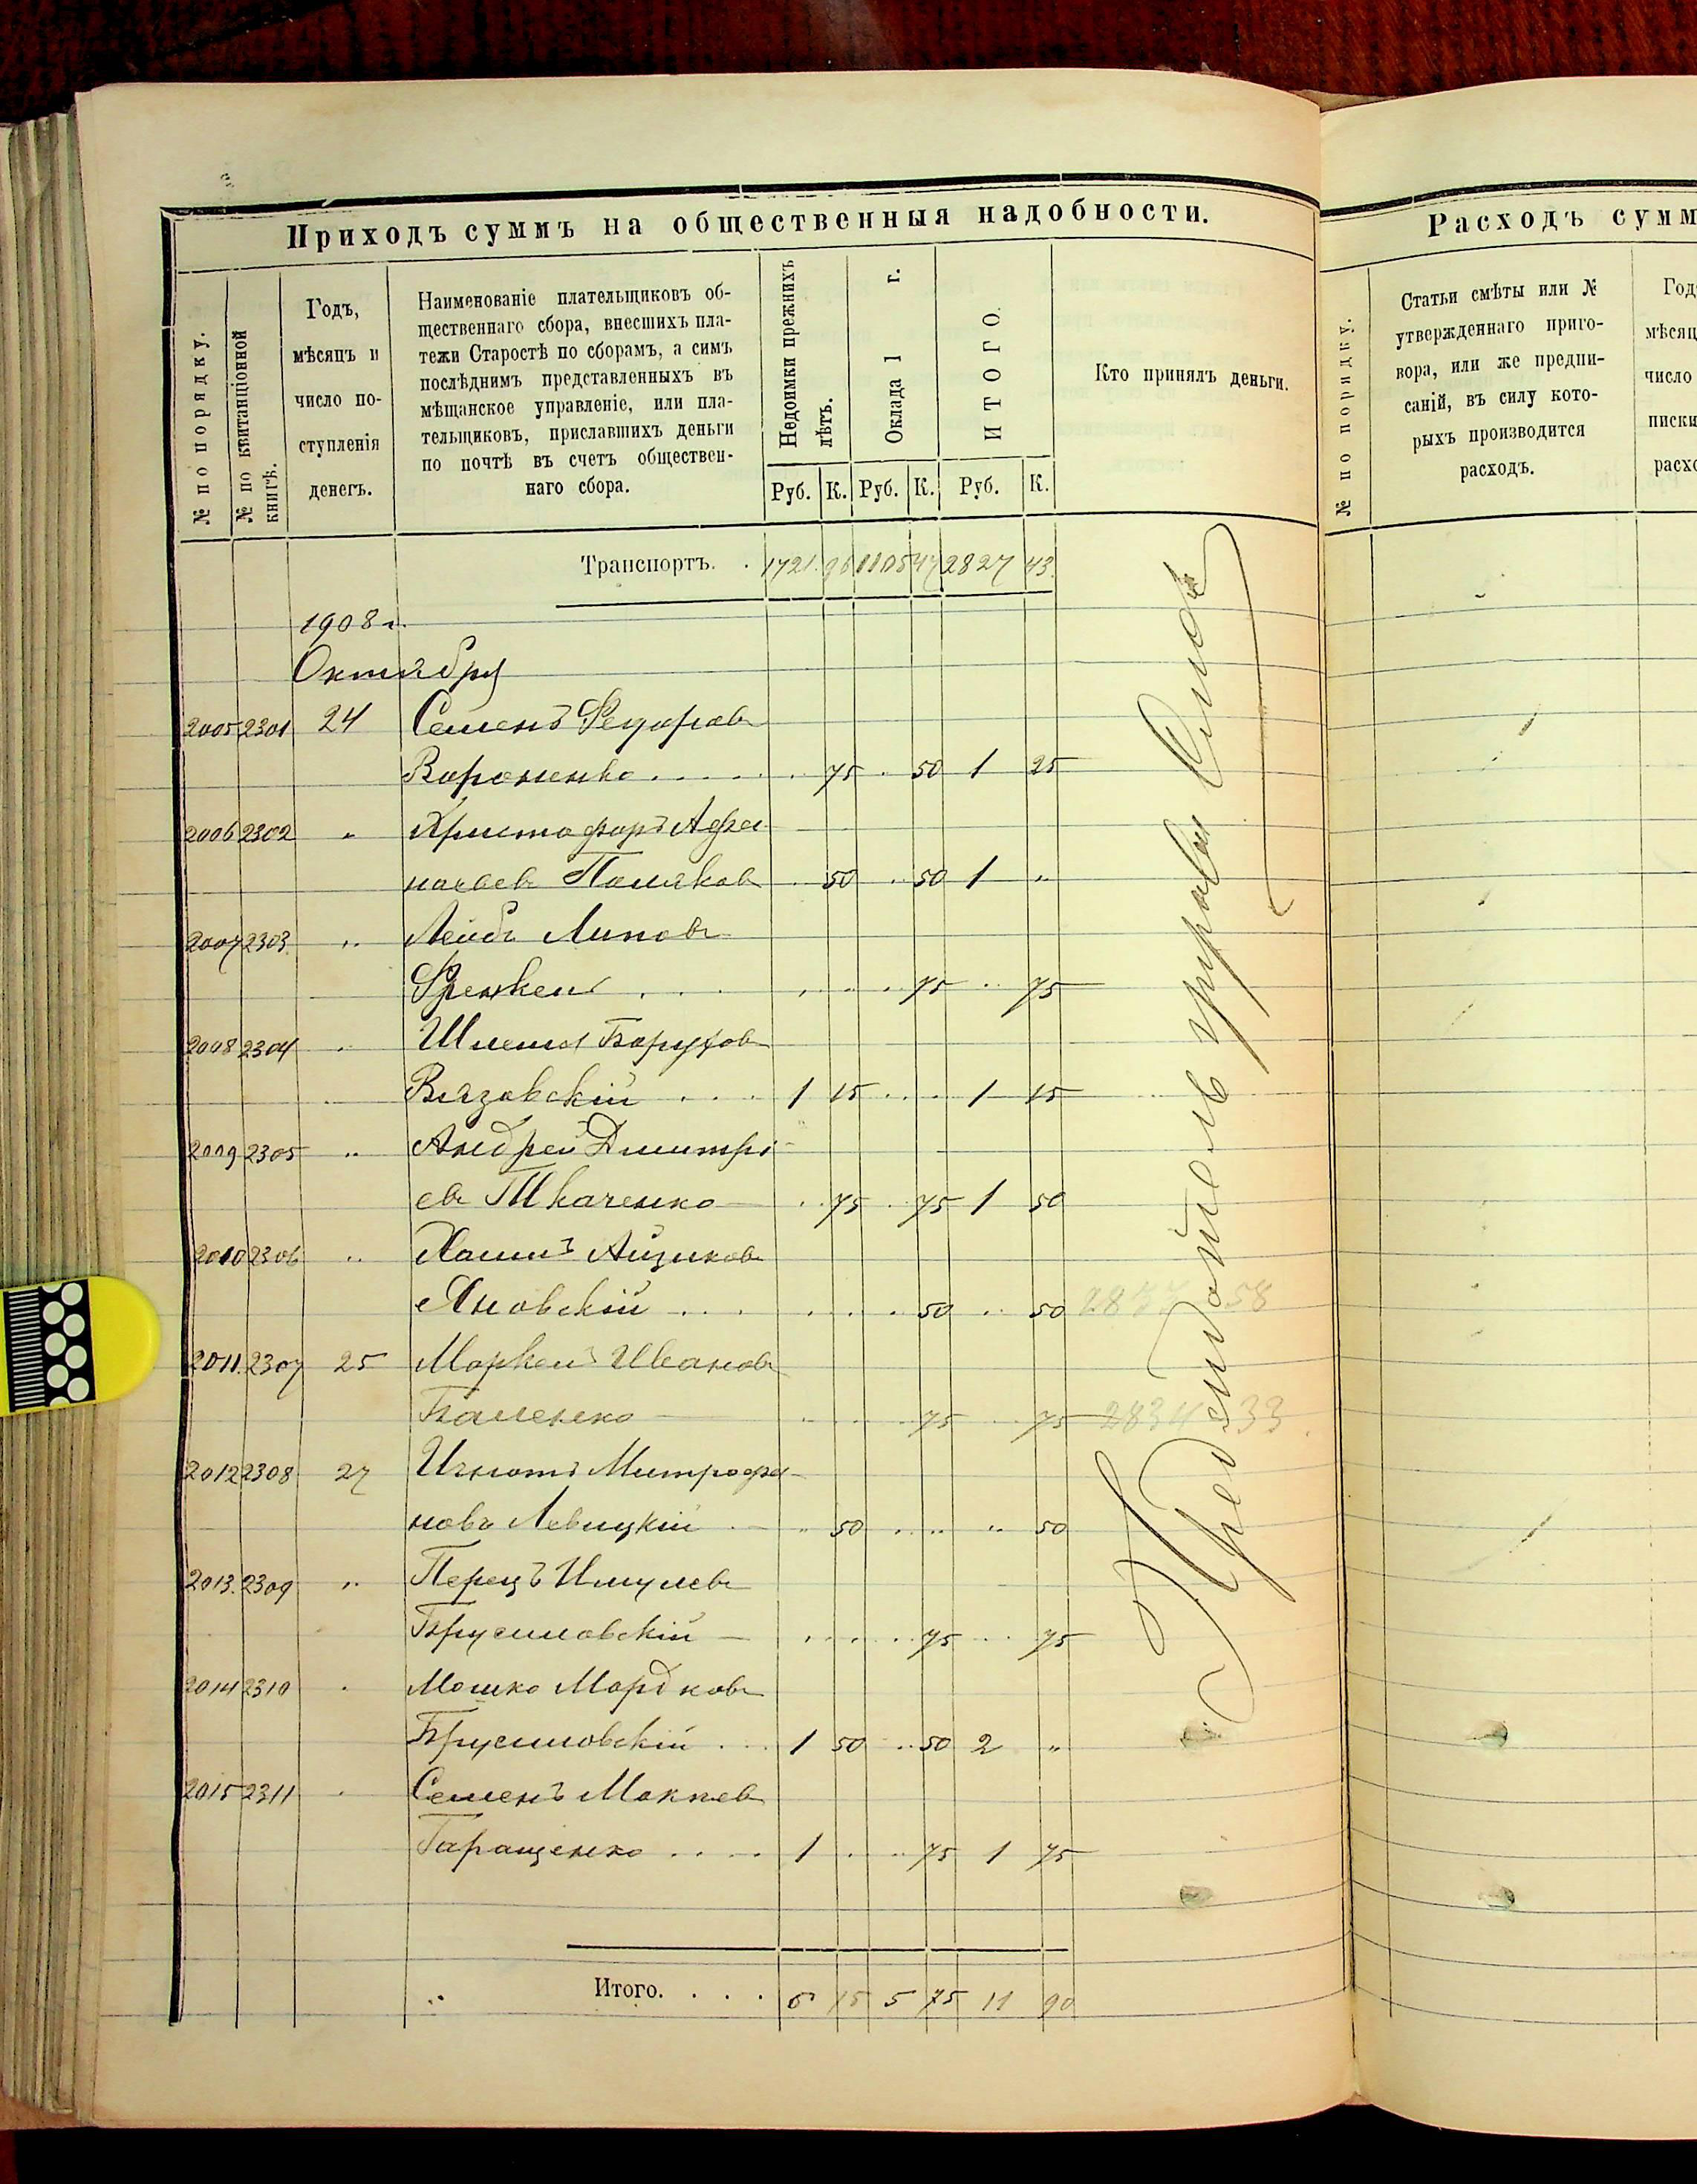 Приходъ суммъ на общественныя надобности.
№ по порядку.
№ по квитанціонной книгѣ.
Годъ,
мѣсяцъ и
число по-
ступленія
денегъ.
Наименованіе плательщиковъ об-
щественнаго сбора, внесшихъ пла-
тежи Старостѣ по сборамъ, а симъ
послѣднимъ представленныхъ въ
мѣщанское управленіе, или пла-
тельщиковъ, приславшихъ деньги
по почтѣ въ счетъ обществен-
наго сбора.
Недоимки прежнихъ лѣтъ.
Оклада 1 г.
ИТОГО.
Руб. К. Руб. К. Руб. К.
Кто принялъ деньги.
Транспортъ. . 1721. 96 1105 47 2827 43.
1908 г.
Октября
2005 2301 24 Семенъ Федоровъ
Вороненко . . . . . 75 . 50 1 25
2006 2302 " Христофоръ Афа-
насьевъ Поляковъ . 50 . 50 1 "
2007 2303 " Лейбъ Липовъ
Френкель . . . . . . . 75 .. 75
2008 2304 " Шлема Боруховъ
Вязовскій . . . 1 15 . . . 1 15
2009 2305 " Андрей Дмитрі-
евъ Ткаченко . . 75 . 75 1 50
2010 2306 " Хаимъ Айзиковъ
Яновскій . . . . . . . 50 .. 50 58
2011. 2307 25 Маркелъ Ивановъ
. . . . 75 . . 75 2834 33
2012 2308 27 Игнатъ Митрофа-
новъ Левицкій . " 50 . .. " 50
2013. 2309 " Перецъ
Брусиловскій . . . . . 75 . . 75
2014 2310 " Мошко Мордковъ
Брусиловскій . . . 1 50 .. 50 2 "
2015 2311 " Семенъ
Таращенко . . . . 1 . . . 75 1 75
Итого. . . . 6 15 5 75 11 90
Расходъ сумм
№ по порядку.
Статьи смѣты или №
утвержденнаго приго-
вора, или же предпи-
саній, въ силу кото-
рыхъ производится
расходъ.
Год
мѣсяц
число
писки
расхо